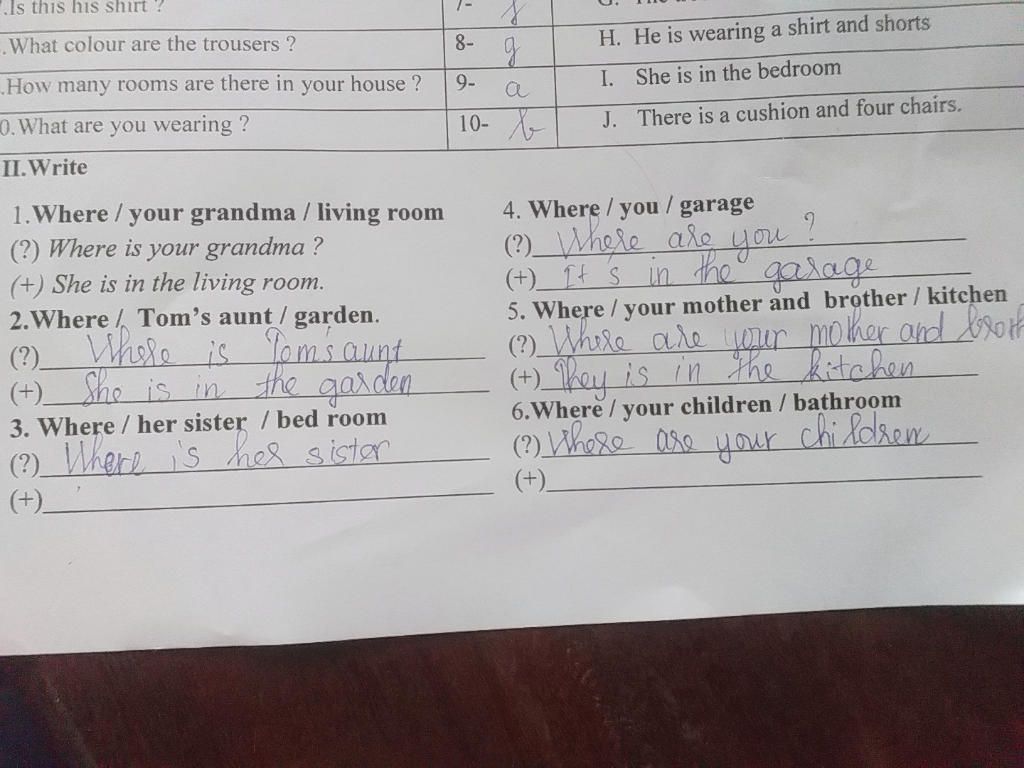 .Is this his shirt ? 7-
.What colour are the trousers ? 8- g H. He is wearing a shirt and shorts
.How many rooms are there in your house ? 9- a I. She is in the bedroom
0.What are you wearing ? 10- b J. There is a cushion and four chairs.
II.Write
1.Where / your grandma / living room
(?) Where is your grandma ?
(+) She is in the living room.
2.Where / Tom's aunt / garden.
(?) Where is Tom's aunt
(+) She is in the garden
3. Where / her sister / bed room
(?) Where is her sister
(+)
4. Where / you / garage
(?) Where are you ?
(+) It s in the garage
5. Where / your mother and brother / kitchen
(?) Where are your mother and broth
(+) They is in the kitchen
6.Where / your children / bathroom
(?) Where are your children
(+)